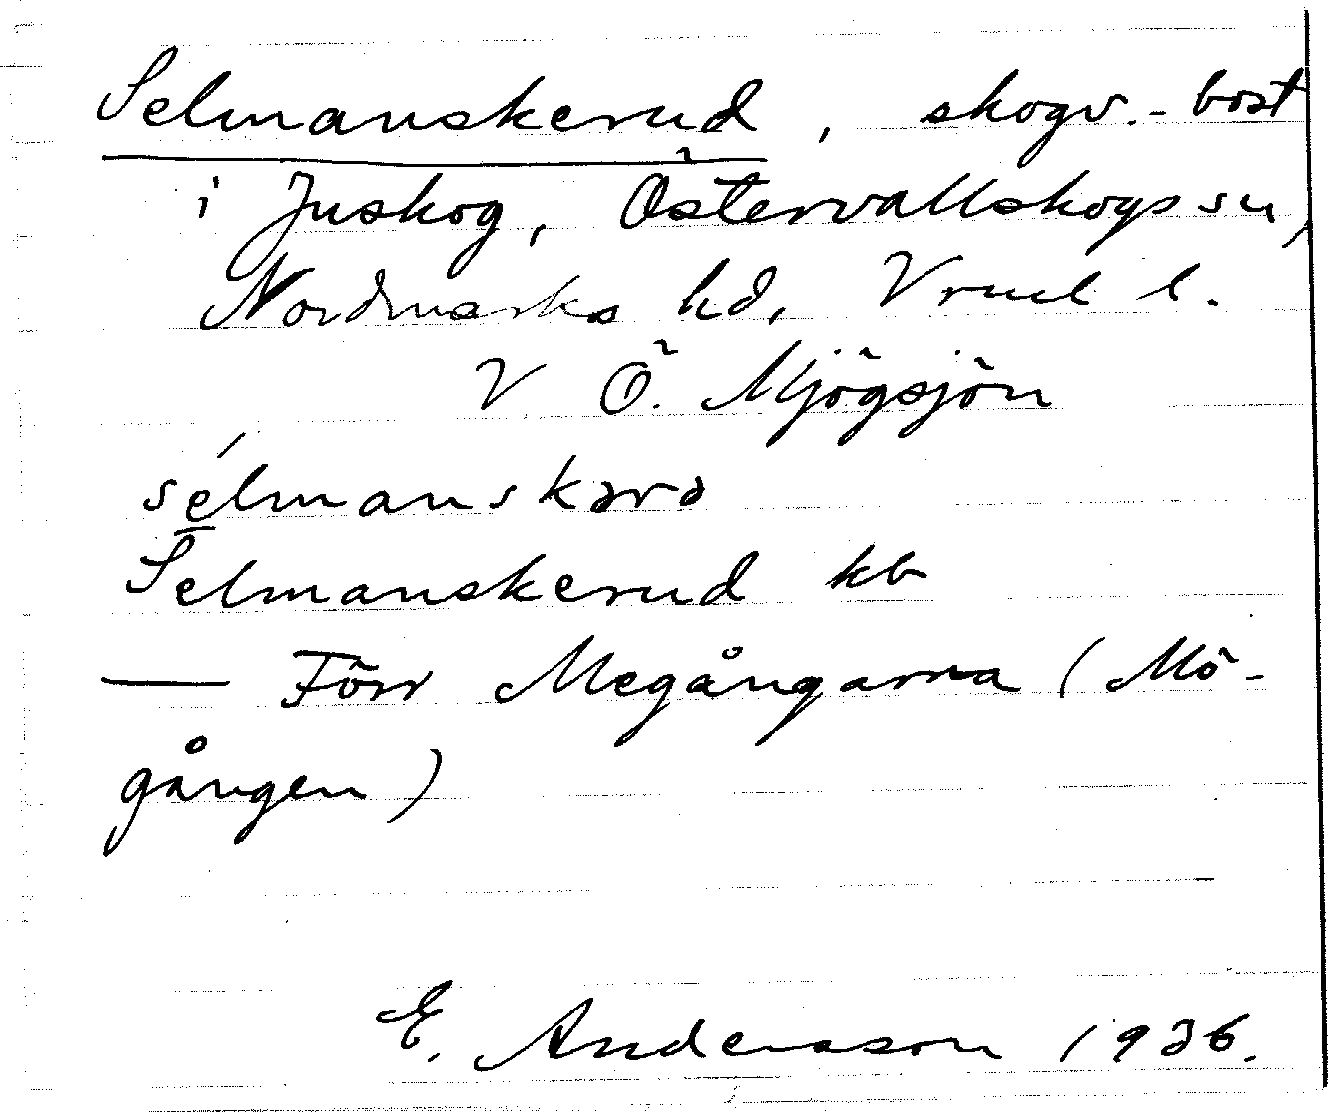 Selmanskerud, skogv.-bost
i Juskog, Östervallskogs sn,
Nordmarks hd, Vrml l.
V Ö. Mjögsjön
sélmanskərə
Selmanskerud kb
— Förr Megångarna (Mö-
gången)
E. Andersson 1936.